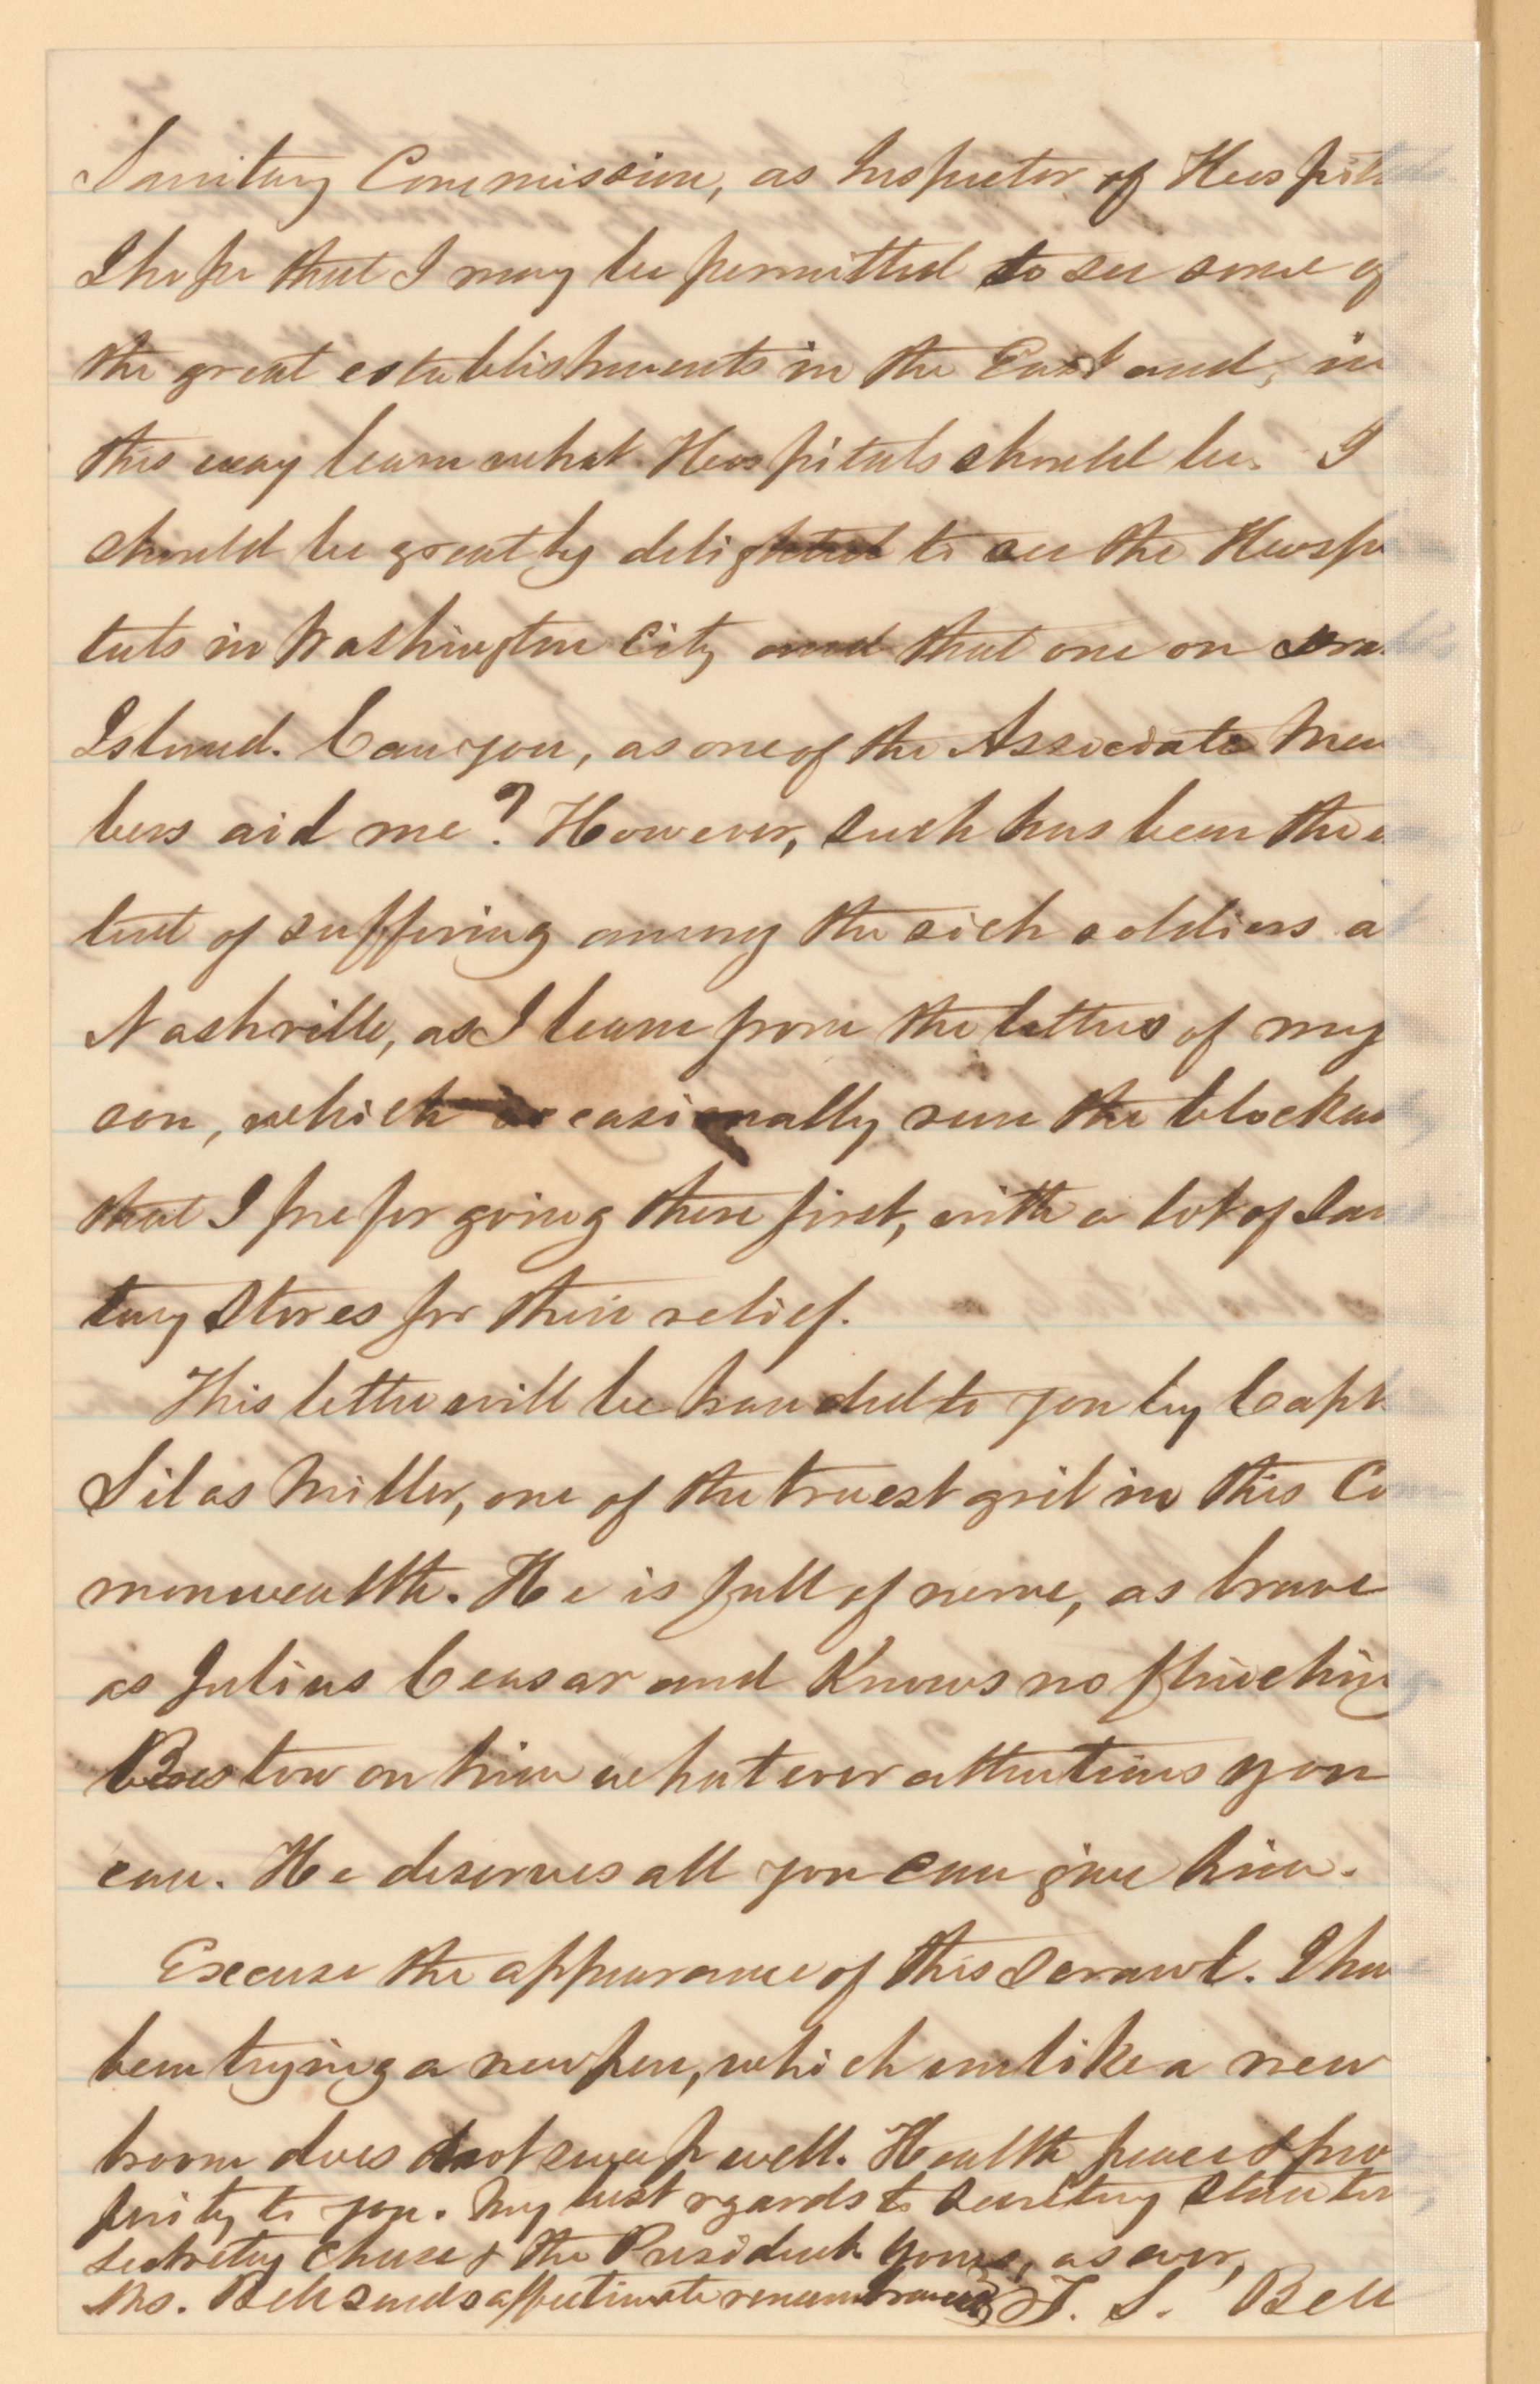 Sanitary Commission, as Inspector of Hospitals
I hope that I may be permitted to see some of
the great establishments in the East and, in
this way learn what Hospitals should be. I
should be greatly delighted to see the Hospi
tals in Washington City and that one on
Island. Can you, as one of the Associate Mem
bers aid me? However, such has been the ex
tent of suffering among the sick soldiers at
Nashville, as I learn from the letters of my
son, which occasionally run the blockade
that I prefer going there first, with a lot of Sani
tary Stores for their relief.
This letter will be handed to you by Capt.
Silas Miller, one of the truest grit in this Com
monwealth. He is full of nerve, as brave
as Julius Ceasar and Knows no flinching
Bestow on him whatever attentions you
can. He deserves all you can give him.
Excuse the appearance of this Scrawl. I have
been trying a new pen, which unlike a new
broom does not sweep well. Health peace & pros
perity to you. My best regards to Secretary Stanton
Secretary Chase & the President. Yours, as ever,
Mrs. Bell sends affectionate remembrances T. S. Bell